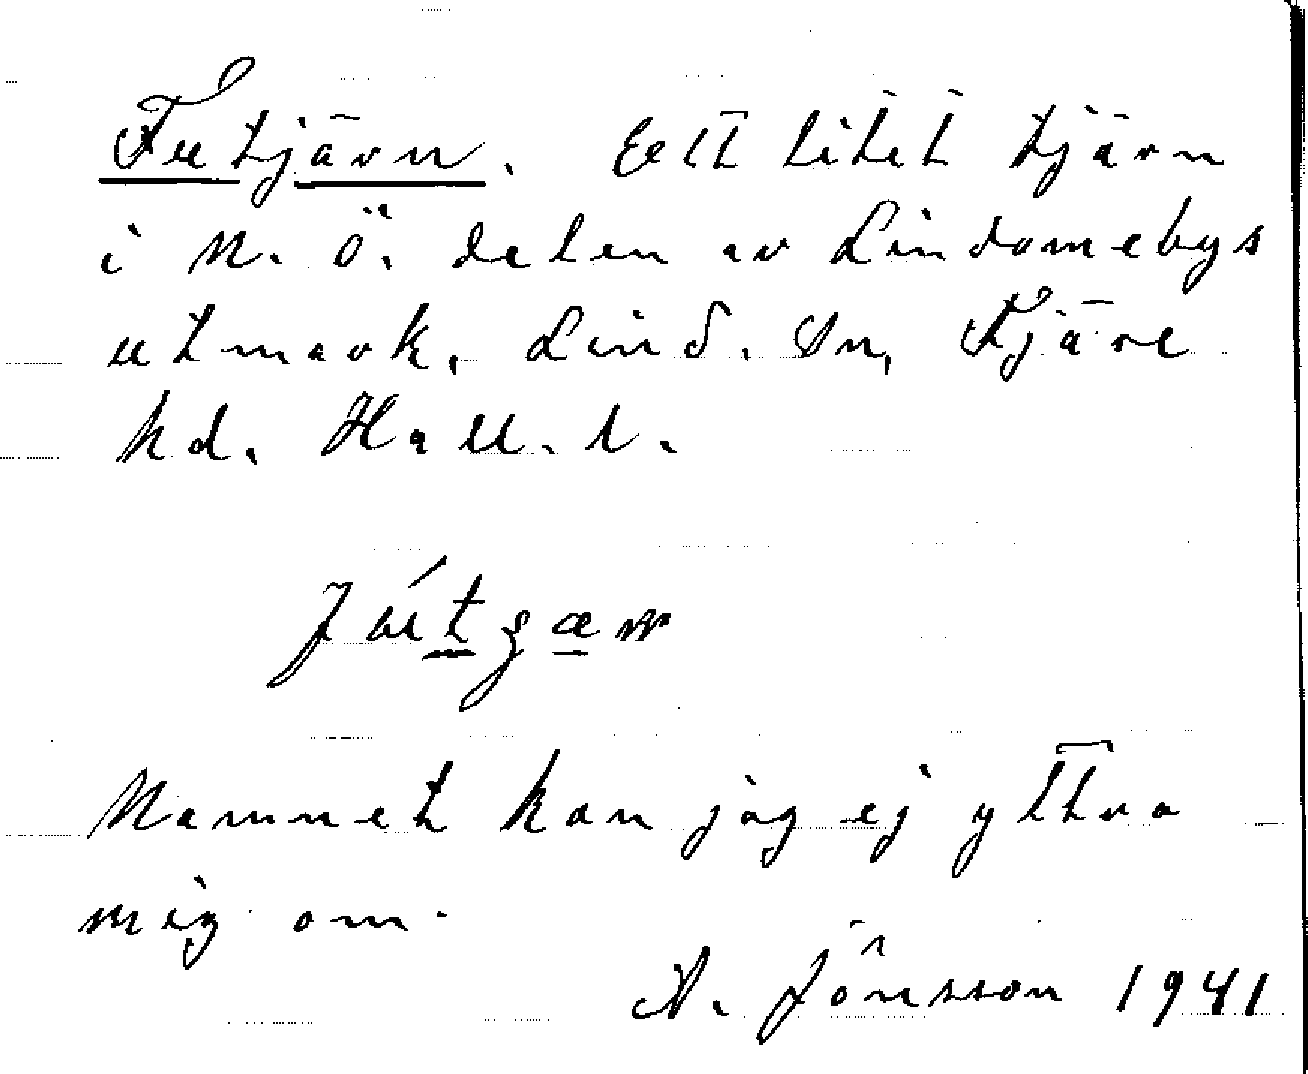 Futjärn. Ett litet tjärn
i N. Ö. delen av Lindomebys
utmark, Lind. Sn, Fjäre
hd. Hall. l.
Namnet kan jag ej yttra
mig om.
A. Jönsson 1941